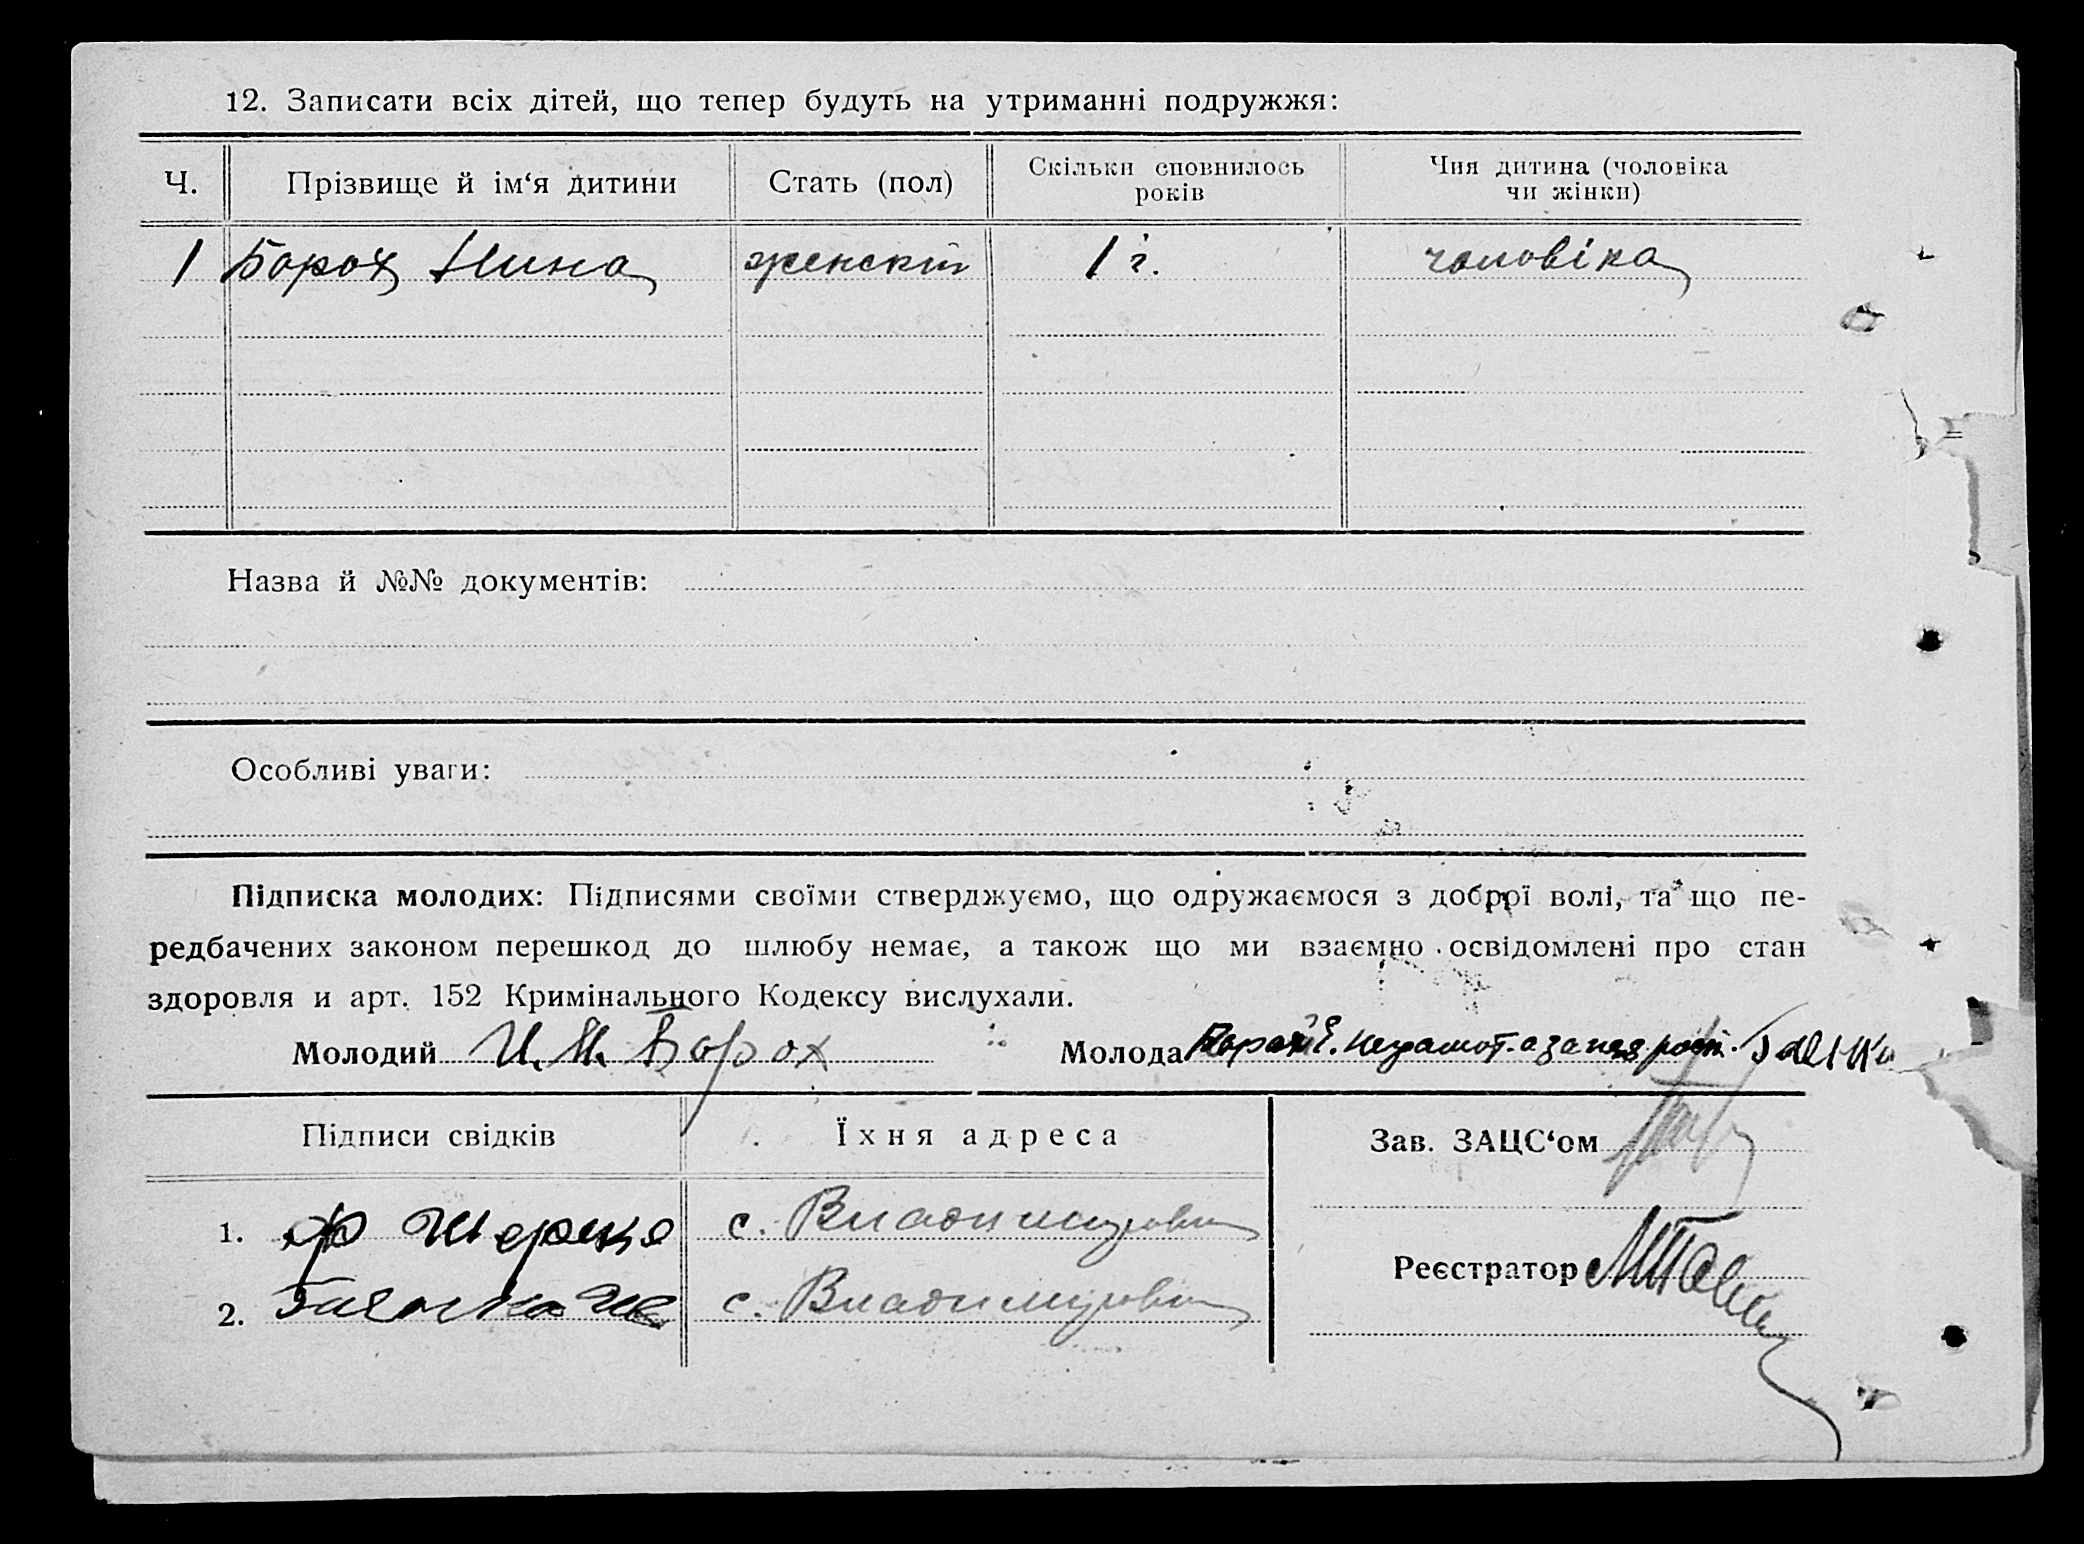 12. Записати всіх дітей, що тепер будуть на утриманні подружжя:
Ч. Прізвище й ім‘я дитини Стать (пол) Скільки сповнилось років Чия дитина (чоловіка чи жінки)
1 Борох Нина женский 1 г. чоловіка
Назва й №№ документів:
Особливі уваги:
Підписка молодих: Підписями своїми стверджуємо, що одружаємося з доброї волі, та що пе-
редбачених законом перешкод до шлюбу немає, а також що ми взаємно освідомлені про стан
здоровля и арт. 152 Кримінального Кодексу вислухали.
Молодий И. И. Борох Молода Борох Е. неграмот. а за нея
Підписи свідків Їхня адреса Зав. ЗАЦС‘ом
1. Ф с. Владимировка
Реєстратор
2. с. Владимировка